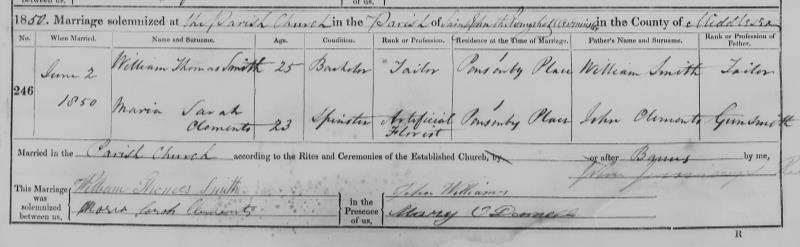 1850. Marriage solemnized at The Parish Church in the Parish of Saint John the Evangelist Westminster in the County of Middlesex
No. When Married. Name and Surname. Age. Condition. Rank or Profession. Residence at the Time of Marriage. Father's Name and Surname. Rank or Profession of Father.
246 June 2 1850 William Thomas Smith 25 Bachelor Tailor Ponsonby Place William Smith Tailor
Maria Sarah Clements 23 Spinster Artificial Florist Ponsonby Place John Clements Gunsmith
Married in the Parish Church according to the Rites and Ceremonies of the Established Church, by or after Banns by me,
John Jennings
This Marriage was solemnized between us, William Thomas Smith
Maria Sarah Clements
in the Presence of us, John Williams
Mary
R